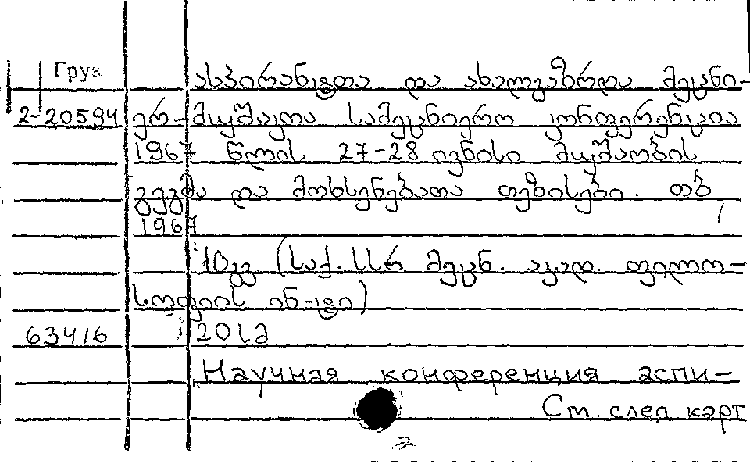 Груз
ასპირანტთა და ახალგაზრდა მეცნი-
2-20594 ერ-მუშაკთა სამეცნიერო კონფერენცია
1967 წლის 27-28 ივნისი მუშაობის
გეგმა და მოხსენებათა თეზისები. თბ
1967
10გვ (საქ. სსრ მეცნ. აკად. ფილო-
სოფიის ინ-ტი)
63416 20სმ
Научная конференция аспи-
См. след карт